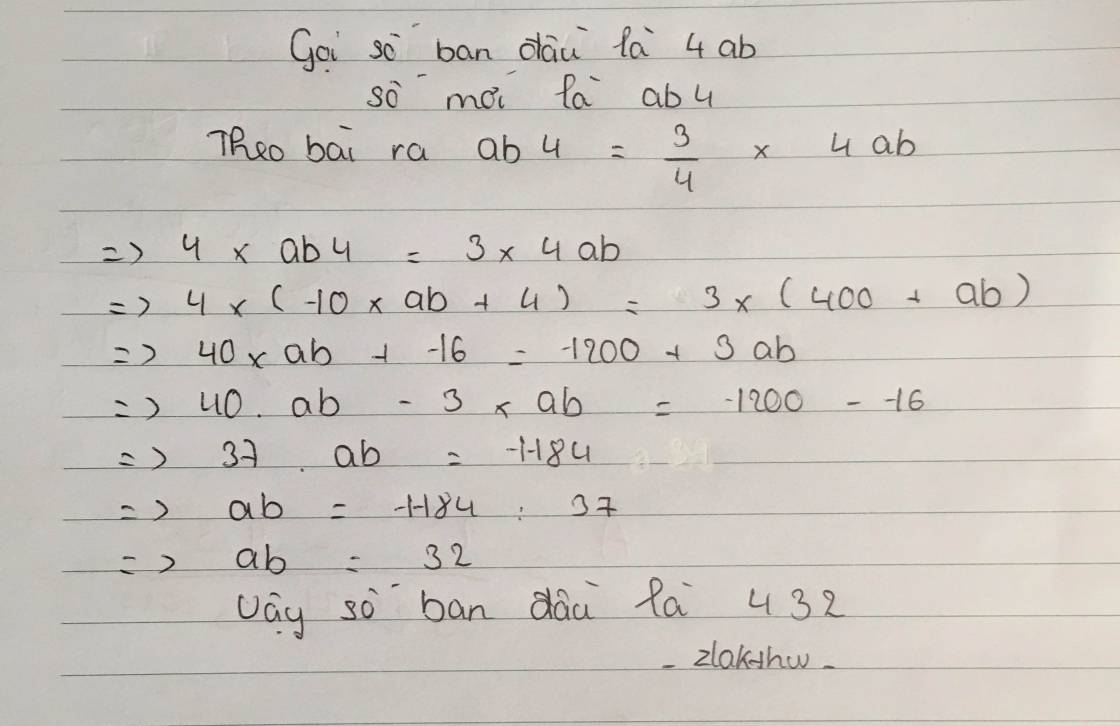 Gọi số ban đầu là 4ab
số mới là ab4
Theo bài ra ab4 = 3/4 × 4ab
=> 4 × ab4 = 3 × 4ab
=> 4 × (10 × ab + 4) = 3 × (400 + ab)
=> 40 × ab + 16 = 1200 + 3ab
=> 40 . ab - 3 × ab = 1200 - 16
=> 37 . ab = 1184
=> ab = 1184 : 37
=> ab = 32
Vậy số ban đầu là 432
- zlakthw -